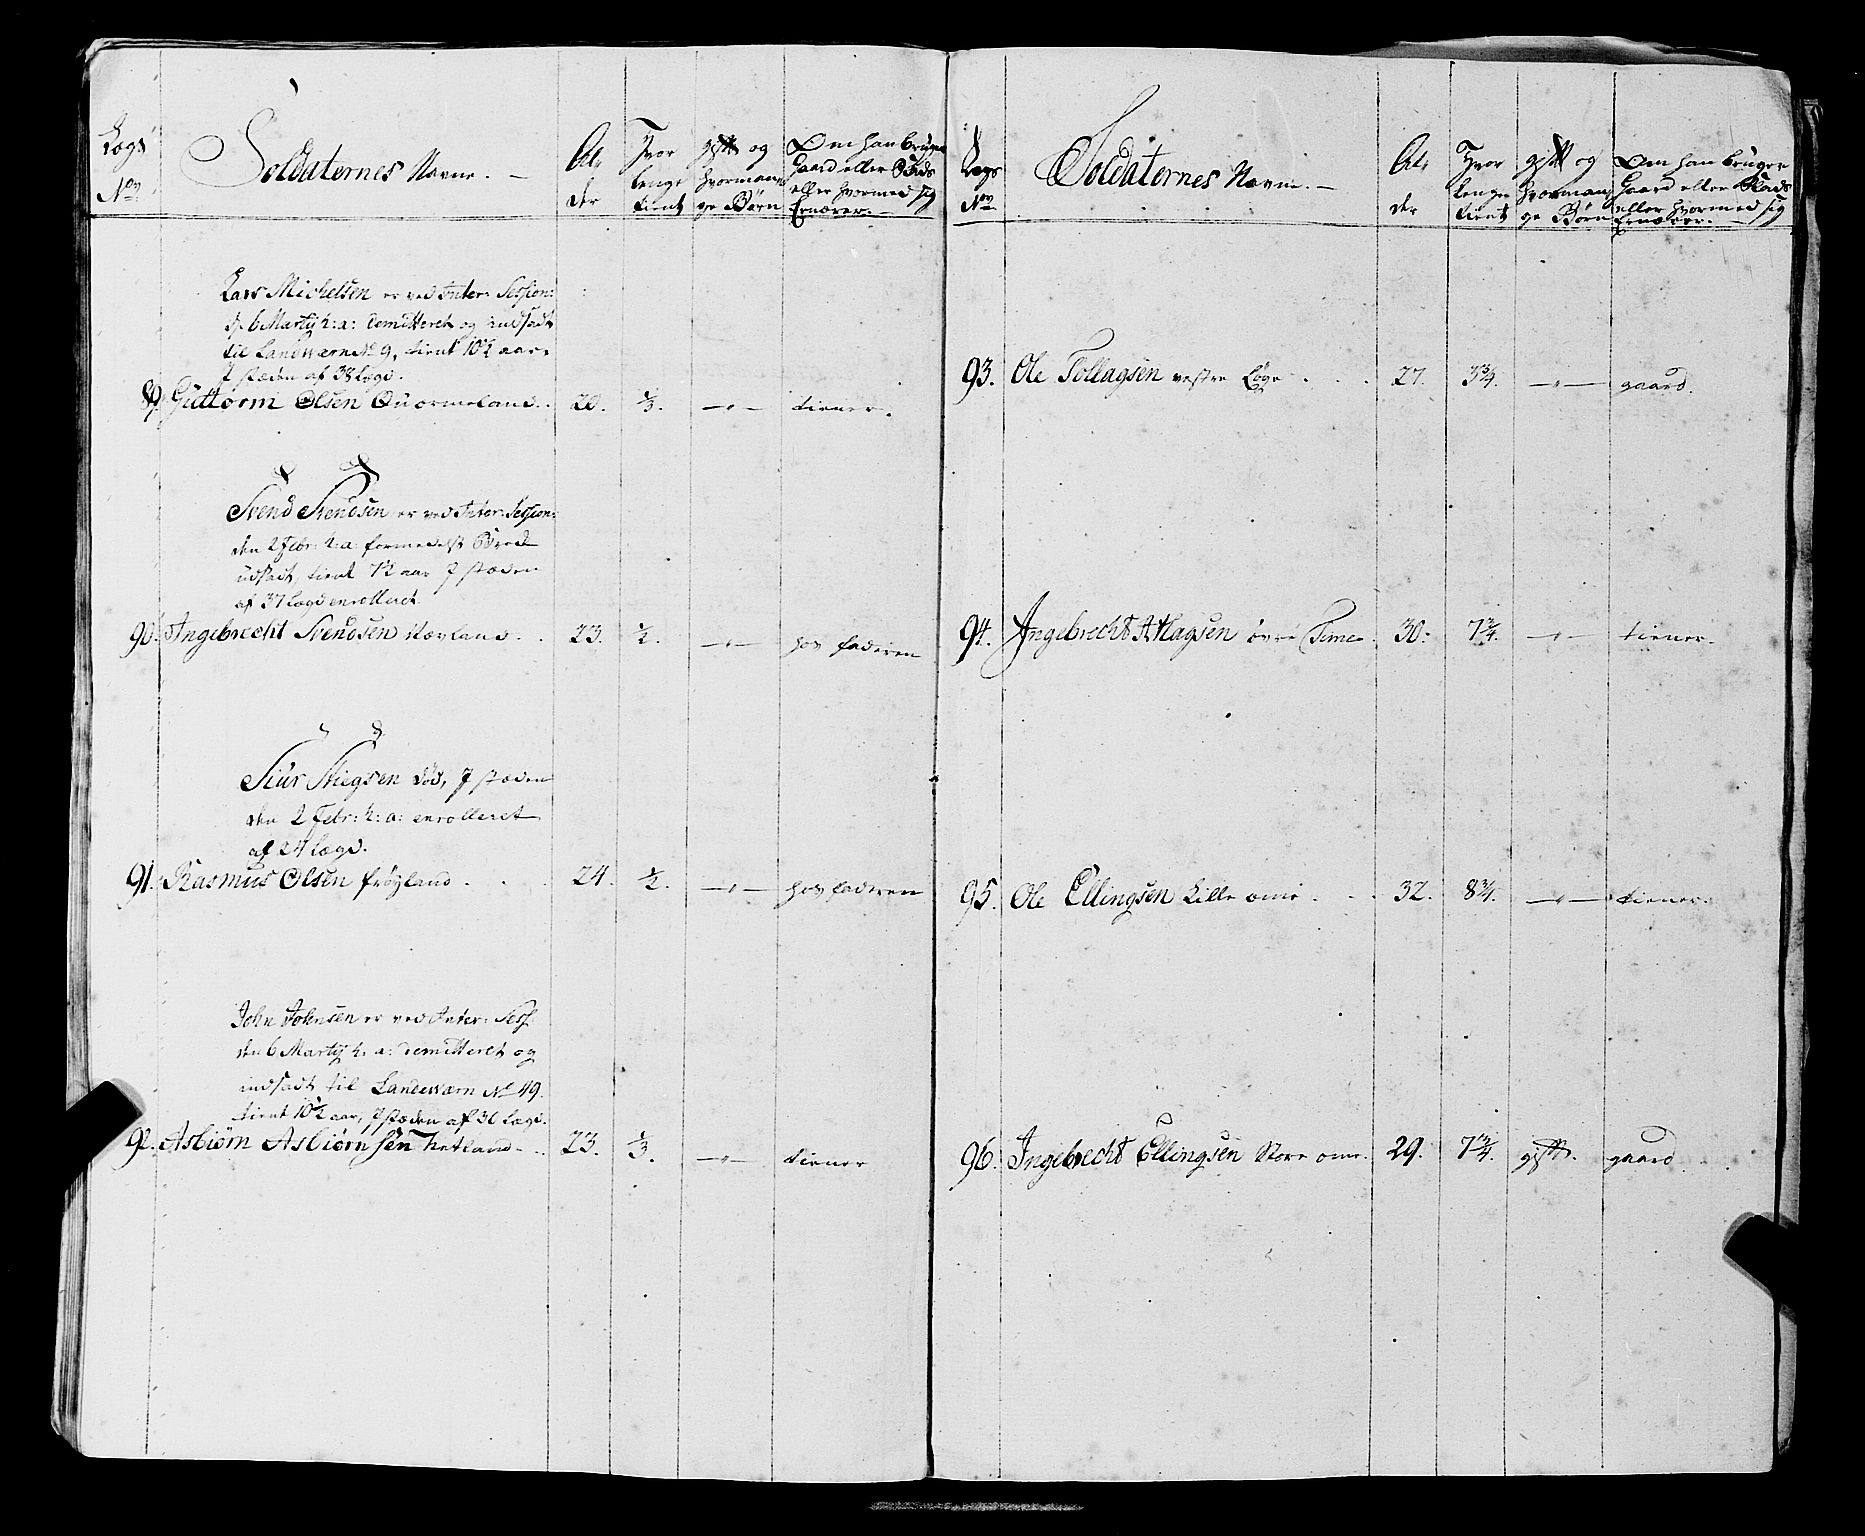 Lægs No: Soldaternes Navne. Al- der Hvor lenge tient gift og hvorman- ge Børn Om han bruger Gaard eller Plads eller hvormed sig Ernærer.
Lars Michelsen er ved Inter: Session:
d. 6 Martij h: a: demitteret og indsadt
til Landværn No 9, tient 10½ aar,
I stæden af 38 Lægd.
89. Guttorm Olsen Quermeland. 20. ⅓. —"— tiener.
Svend Svendsen er ved Inter: Session:
den 2 Febr: h: a: formedelst Bræk
udsadt, tient 1½ aar I stæden
af 37 Lægd enrolleret
90. Ingebrecht Svendsen Nævland. . 23. ½. —"— hos faderen
Siur Stiegsen död, I stæden
den 2 Febr: h: a: enrolleret
af 24 Lægd.
91. Rasmus Olsen frøyland . . . 24. ½. —"— hos faderen
John Johnsen er ved Inter: Sess:
den 6 Martij h: a: demitteret og
indsadt til Landeværn No 49.
tient 10½ aar, I stæden af 36 Lægd.
92. Asbiørn Asbiørnsen hetland . . 23. ⅓. —"— tiener
Lægs No: Soldaternes Navne. Al- der Hvor lenge tient gift og hvorman- ge Børn Om han bruger Gaard eller Plads eller hvormed sig Ernærer.
93. Ole Tollagsen vestre Løge . . . 27. 3¾. —"— gaard.
94. Ingebrecht Atlagsen øvre Time . 30. 7¾. —"— tiener.
95. Ole Ellingsen Lille ome . . . 32. 8¾. —"— tiener.
96. Ingebrecht Ellingsen Store ome. 29. 7¾. gift. gaard